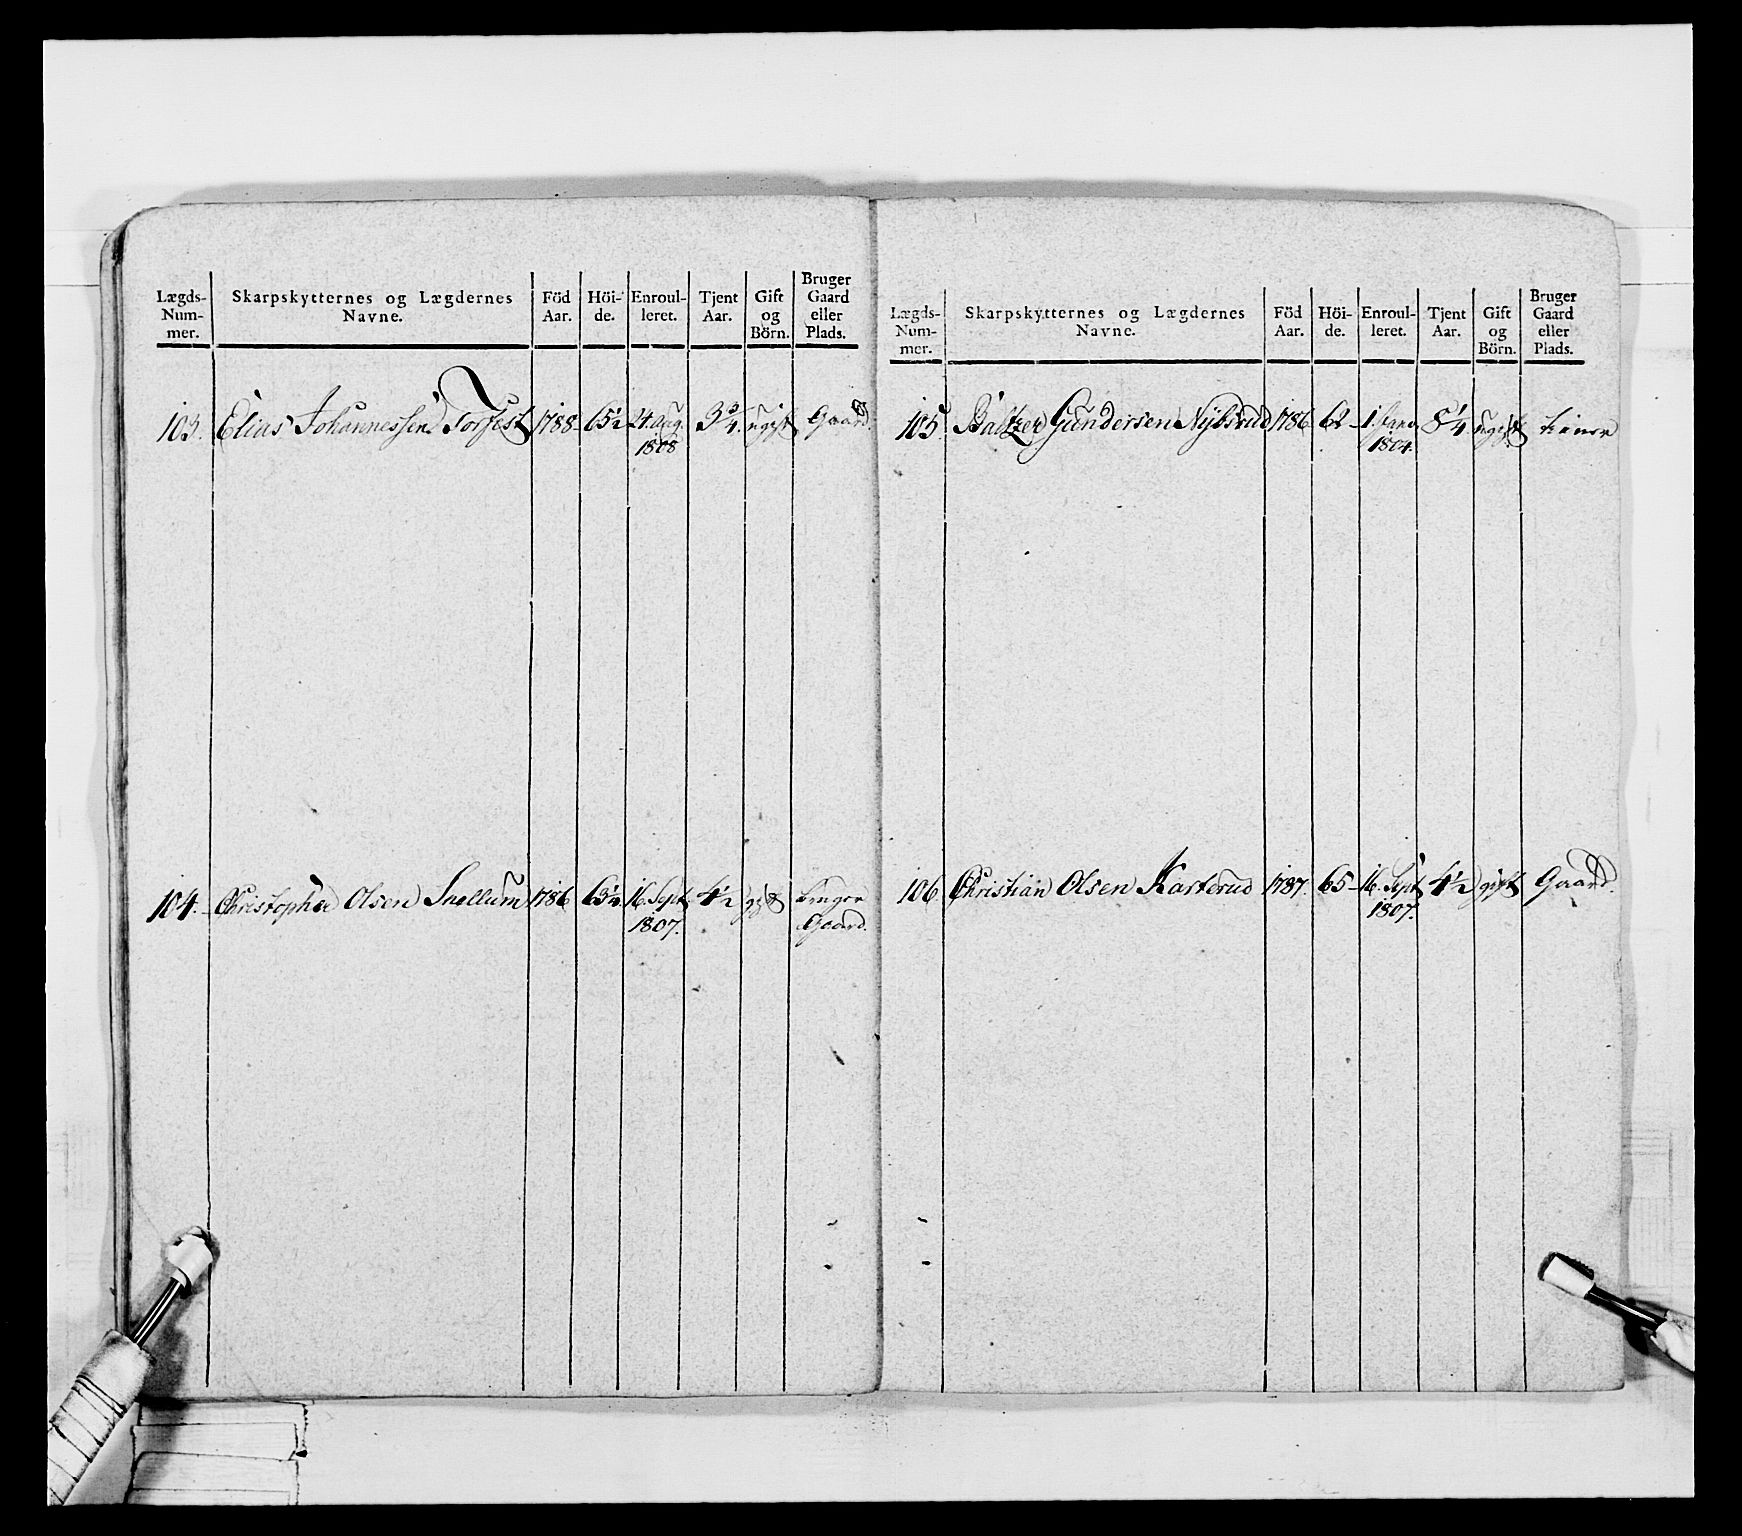 Lægds-Num-mer. Skarpskytternes og Lægdernes Navne. Föd Aar. Höi-de. Enroul-leret. Tjent Aar. Gift og Börn. Bruger Gaard eller Plads.
103. Elias Johannessen Torfest 1788 65½ 24 Aug. 1808 3¾. ugift Gaard.
104. Christopher Olsen Snellum 1786 63¼ 16. Sept. 1807. 4½ gift bruger Gaard.
Lægds-Num-mer. Skarpskytternes og Lægdernes Navne. Föd Aar. Höi-de. Enroul-leret. Tjent Aar. Gift og Börn. Bruger Gaard eller Plads.
105. Baltzer Gundersen Nybsrud 1786 62 1. Janv. 1804. 8¼. ugift tiener
106. Christian Olsen Kasterud 1787. 65 16. Sept 1807. 4½ gift Gaard.